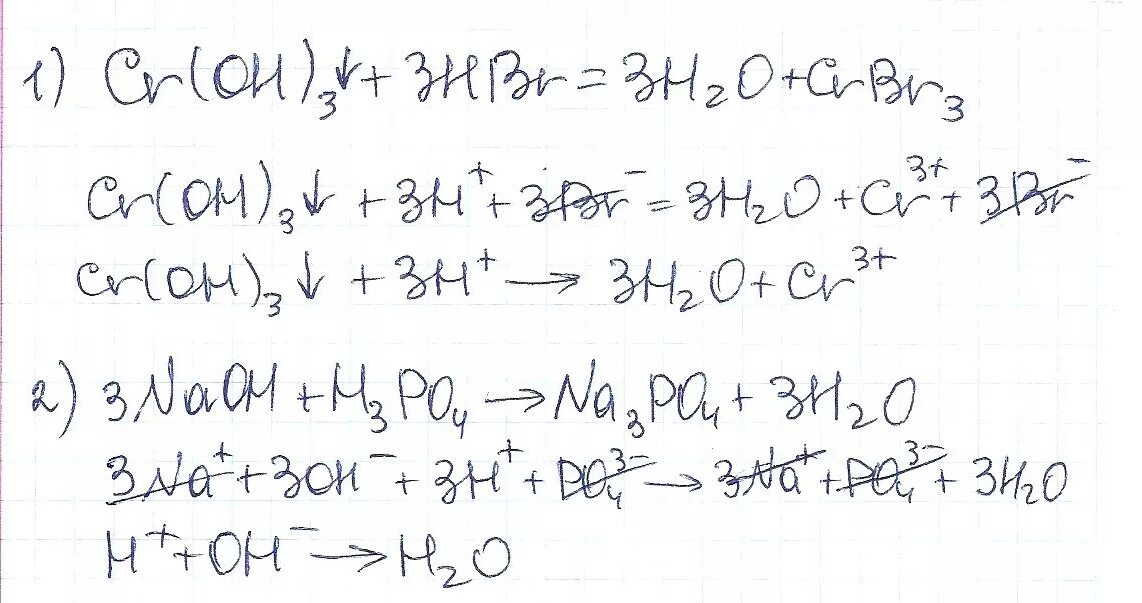 1) Cr(OH)₃↓ + 3HBr = 3H₂O + CrBr₃
Cr(OH)₃↓ + 3H⁺ + 3Br⁻ = 3H₂O + Cr³⁺ + 3Br⁻
Cr(OH)₃↓ + 3H⁺ → 3H₂O + Cr³⁺
2) 3NaOH + H₃PO₄ → Na₃PO₄ + 3H₂O
3Na⁺ + 3OH⁻ + 3H⁺ + PO₄³⁻ → 3Na⁺ + PO₄³⁻ + 3H₂O
H⁺ + OH⁻ → H₂O